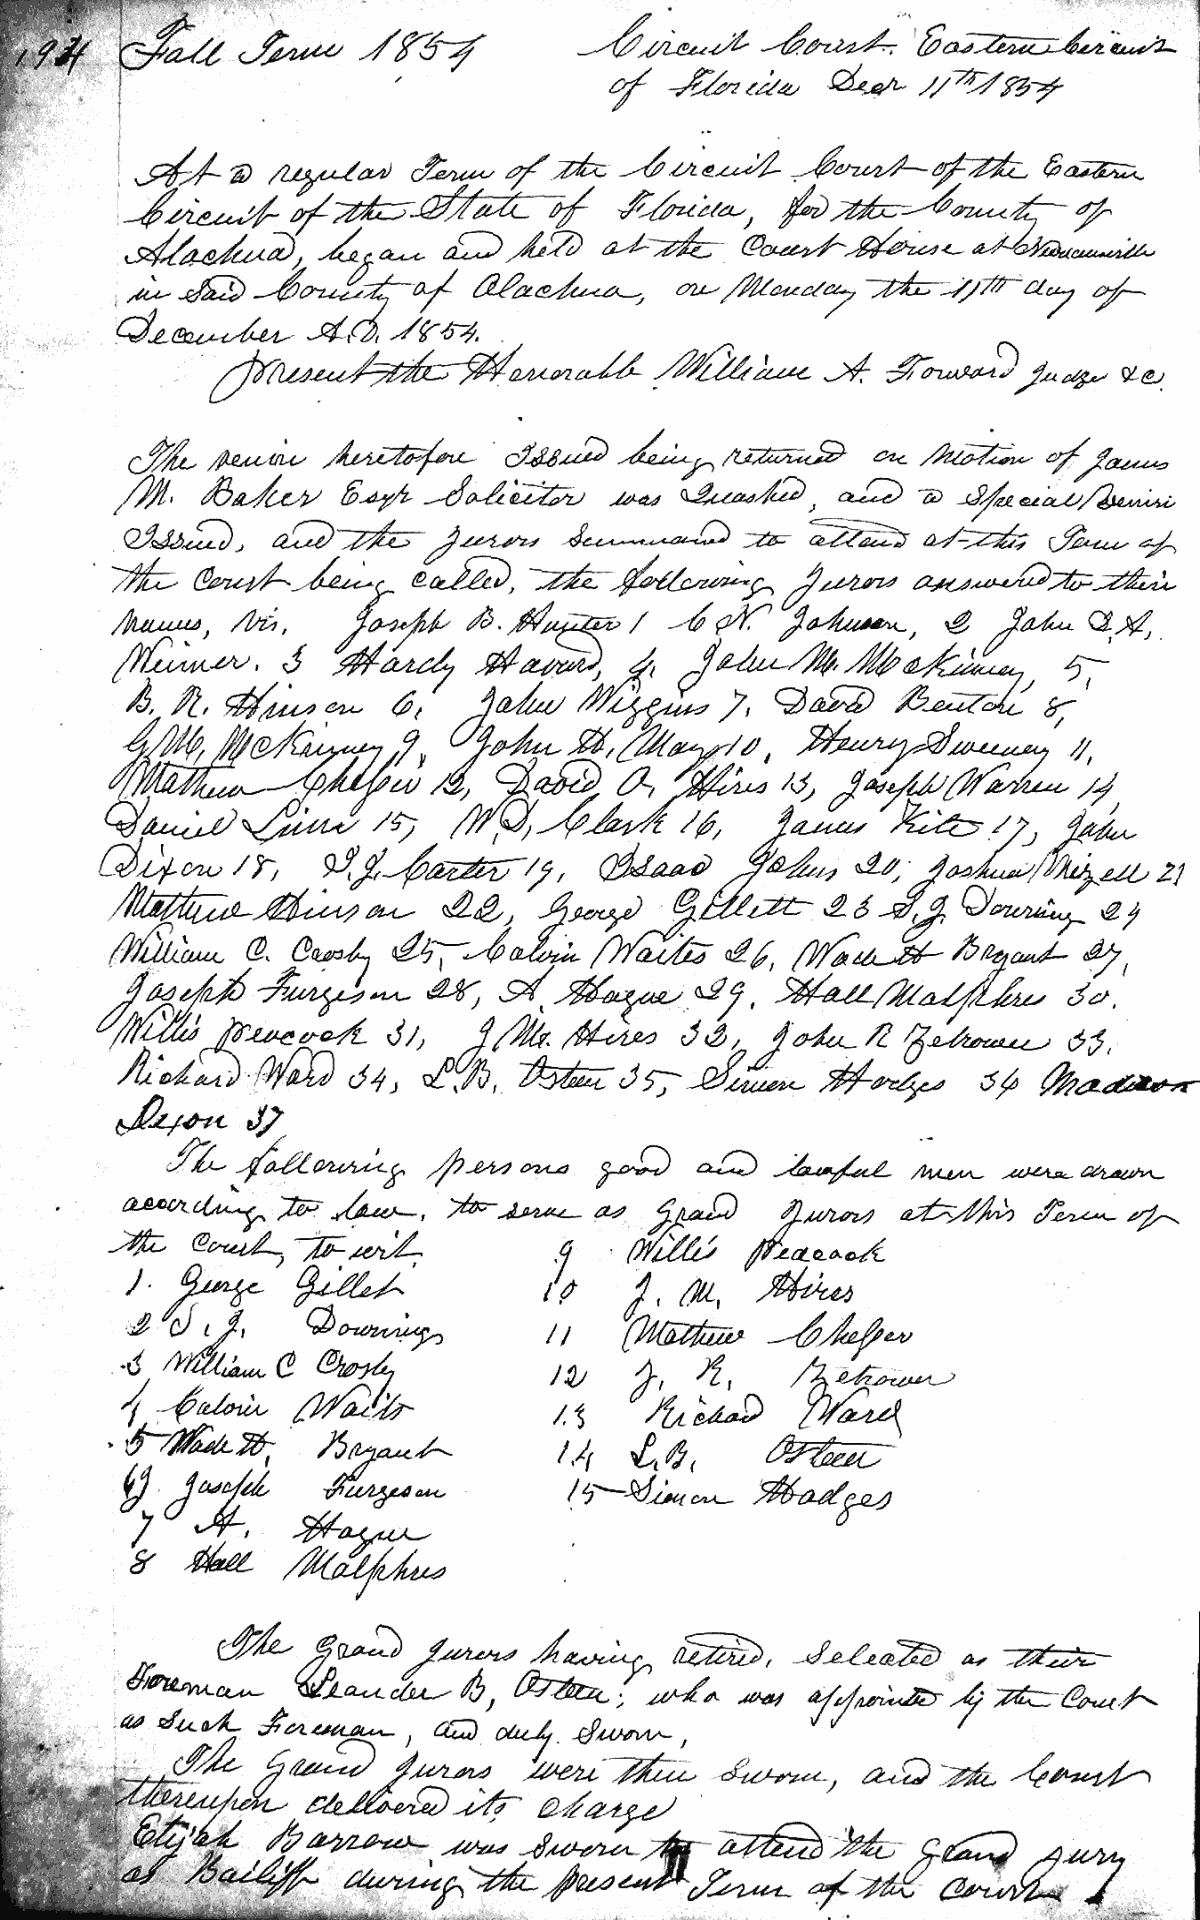 194 Fall Term 1854 Circuit Court. Eastern Circuit
of Florida Decr 11th 1854
At a regular Term of the Circuit Court of the Eastern
Circuit of the State of Florida, for the County of
Alachua, began and held at the Court House at Newnansville
in said County of Alachua, on Monday the 11th day of
December A.D. 1854.
present the Honorable William A. Forward Judge &c.
The venire heretofore Issued being returned on motion of James
M. Baker Esqr Solicitor was Quashed, and a Special Venire
Issued, and the Jurors Summoned to attend at this Term of
the Court being called, the following Jurors answered to their
names, viz. Joseph B. Hunter 1 C. N. Johnson, 2 John D. A.
Weimer. 3 Hardy Havard, 4. John M. McKinney, 5,
B. R. Hinson 6, John Wiggins 7, David Benton 8,
G M. McKinney 9, John H. May 10, Henry Sweeney 11,
Mathew Chesser 12, David O. Hires 13, Joseph Warren 14,
Daniel Linn 15, W. D. Clark 16, James Kite 17, John
Dixon 18, I. J. Carter 19, Isaac Johns 20, Joshua Mizell 21
Matthew Hinson 22, George Gillett 23 S. J. Downing 24
William C. Crosby 25, Calvin Waites 26, Wade H Bryant 27,
Joseph Furgeson 28, A. Hague 29, Hall Malphres 30.
Willis Peacock 31, J M. Hires 32, John R Zetrower 33.
Richard Ward 34, L. B. Osteen 35, Simon Hodges 36 Madison
Dixon 37
The following persons good and lawful men were drawn
according to law, to serve as Grand Jurors at this Term of
the Court, to wit.
1. George Gillet
2 S. J. Downings
3 William C Crosby
4 Calvin Waits
5 Wade H. Bryant
6 Joseph Furgeson
7 A. Hague
8 Hall Malphres
9 Willis Peacock
10 J. M. Hires
11 Mathew Chesser
12 J. R. Zetrower
13 Richard Ward
14 L. B. Osteen
15 Simon Hodges
The Grand Jurors having retired, Selected as their
Foreman Leander B, Osteen; who was appointed by the Court
as Such Foreman, and duly Sworn,
The Grand Jurors were then Sworn, and the Court
thereupon delivered its charge
Elijah Barrow was Sworn to attend the Grand jury
as Bailiff during the present Term of the Court